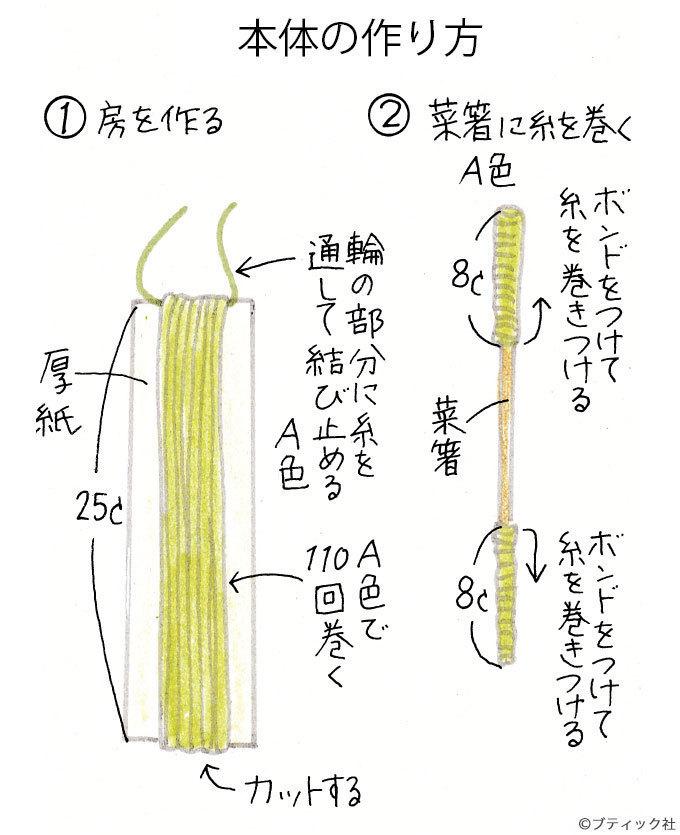 本体の作り方
① 房を作る
輪の部分に糸を
通して結び止める
A色
厚紙
25c
A色で
110回巻く
カットする
② 菜箸に糸を巻く
A色
ボンドをつけて
糸を巻きつける
8c
菜箸
ボンドをつけて
糸を巻きつける
8c
©ブティック社